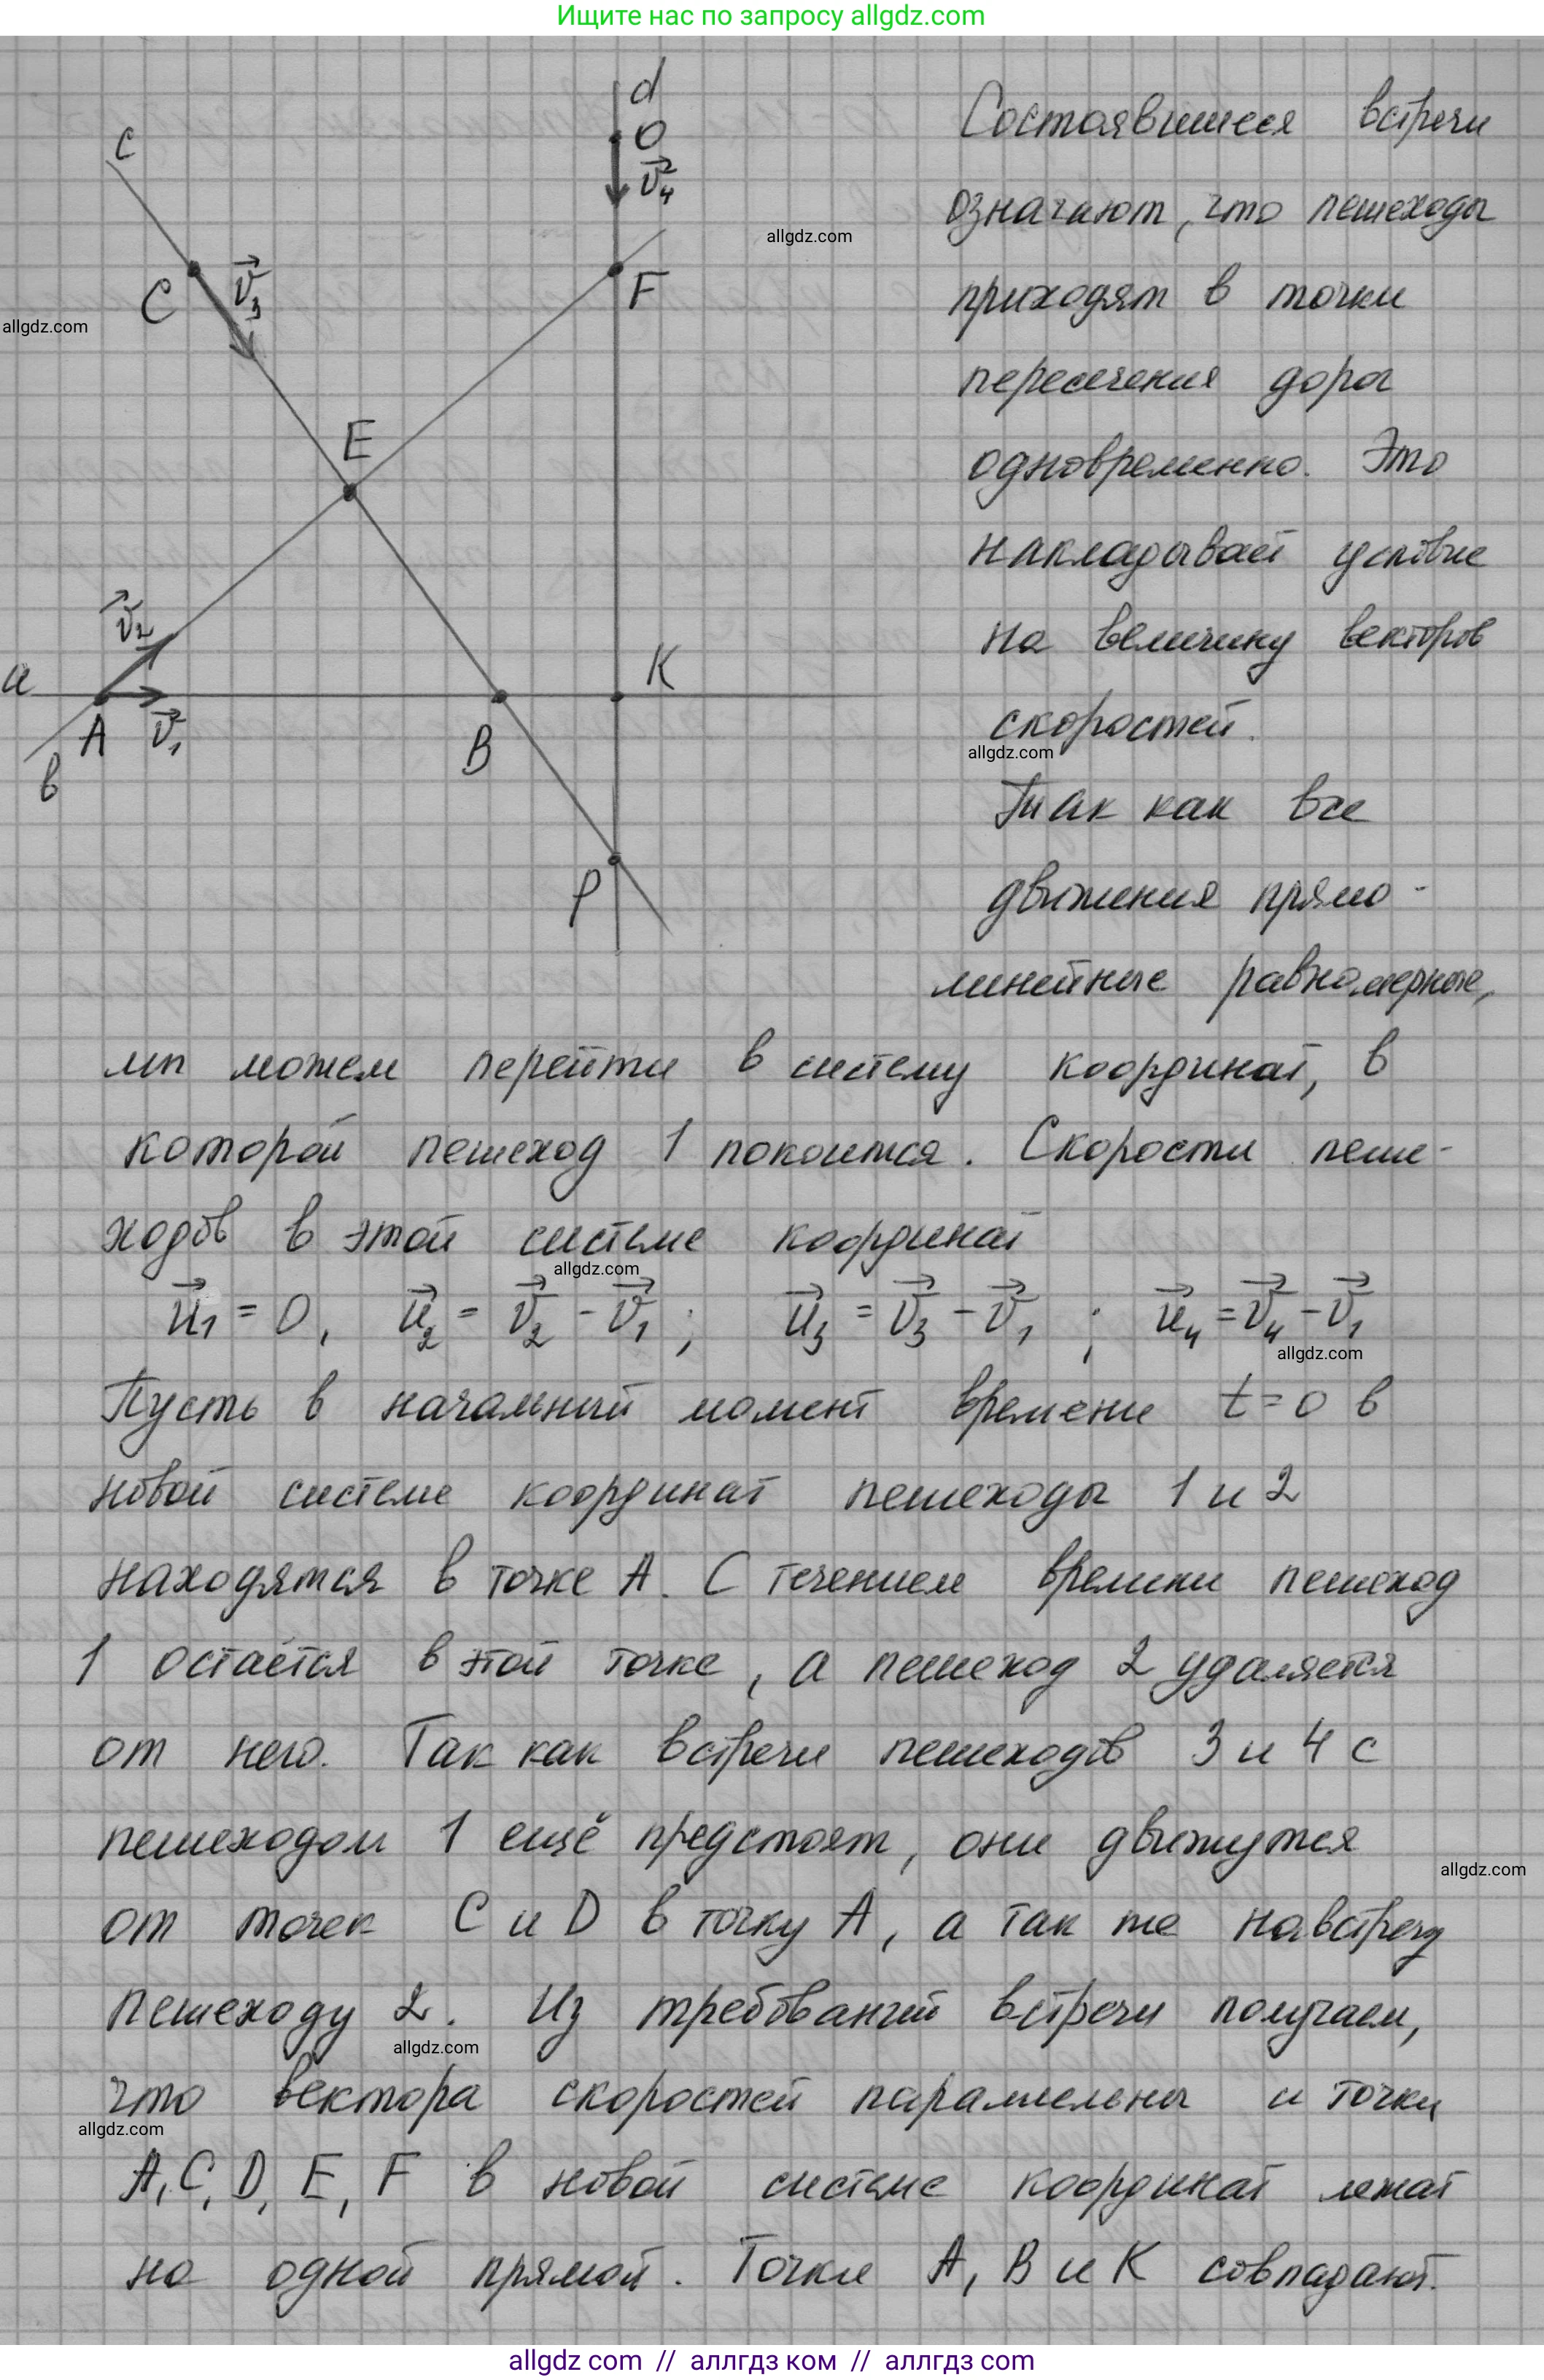 Ищите нас по запросу allgdz.com
d
O
v₄
c
C
v₃
F
E
v₂
a
A
v₁
B
K
в
P
Состоявшиеся встречи
означают, что пешеходы
приходят в точки
пересечения дорог
одновременно. Это
накладывает условие
на величину векторов
скоростей.
Так как все
движения прямо-
линейные равномерные,
мы можем перейти в систему координат, в
которой пешеход 1 покоится. Скорости пеше-
ходов в этой системе координат
u₁ = 0, u₂ = v₂ - v₁; u₃ = v₃ - v₁; u₄ = v₄ - v₁
Пусть в начальный момент времени t=0 в
новой системе координат пешеходы 1 и 2
находятся в точке A. С течением времени пешеход
1 остаётся в этой точке, а пешеход 2 удаляется
от него. Так как встречи пешеходов 3 и 4 с
пешеходом 1 ещё предстоят, они движутся
от точек C и D в точку A, а так же навстречу
пешеходу 2. Из требований встречи получаем,
что вектора скоростей параллельны и точки
A, C, D, E, F в новой системе координат лежат
на одной прямой. Точки A, B и K совпадают.
allgdz.com
allgdz.com
allgdz.com
allgdz.com
allgdz.com
allgdz.com
allgdz.com
allgdz.com
allgdz com // аллгдз ком // аллгдз com